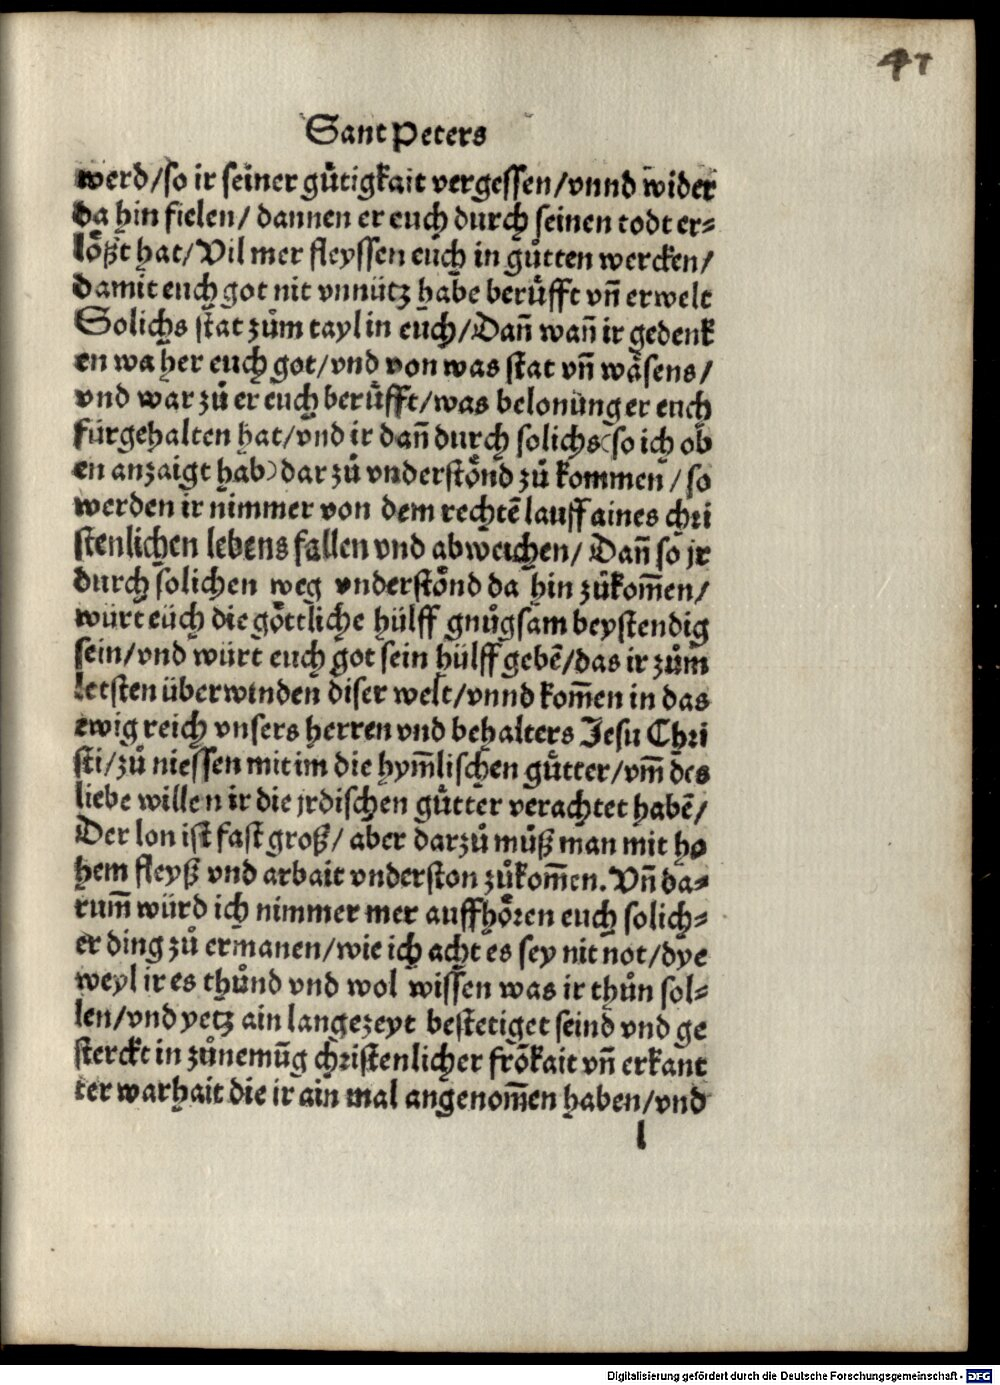 41
Sant Peters
werd/so ir seiner gůtigkait vergessen/vnnd wider
da hin fielen/ dannen er euch durch seinen todt er⸗
lößt hat/Vil mer fleyssen euch in gůtten wercken/
damit euch got nit vnnütz habe berůfft vñ erwelt
Solichs stat zům tayl in euch/Dañ wañ ir gedenk
en wa her euch got/vnd von was stat vñ wåsens/
vnd war zů er euch berůfft/was belonüng er euch
fürgehalten hat/vnd ir dañ durch solichs(so ich ob
en anzaigt hab)dar zů vnderstönd zů kommen/so
werden ir nimmer von dem rechtē lauff aines chri
stenlichen lebens fallen vnd abweichen/ Dañ so jr
durch solichen weg vnderstönd da hin zůkom̄en/
würt eüch die göttliche hülff gnůgsam beystendig
sein/vnd würt euch got sein hülff gebē/das ir zům
letsten überwinden diser welt/vnnd kom̄en in das
ewig reich vnsers herren vnd behalters Jesu Chri
sti/zů niessen mit im die hym̄lischen gůtter/vm̄ des
liebe willen ir die jrdischen gůtter verachtet habē/
Der lon ist fast groß/ aber darzů můß man mit ho
hem fleyß vnd arbait vnderston zůkom̄en. Vñ da⸗
rum̄ würd ich nimmer mer auffhören euch solich⸗
er ding zů ermanen/wie ich acht es sey nit not/dye
weyl ir es thůnd vnd wol wissen was ir thůn sol⸗
len/vnd yetz ain langezeyt bestetiget seind vnd ge
sterckt in zůnemūg christenlicher frōkait vñ erkant
ter warhait die ir ain mal angenom̄en haben/vnd
l
Digitalisierung gefördert durch die Deutsche Forschungsgemeinschaft - DFG